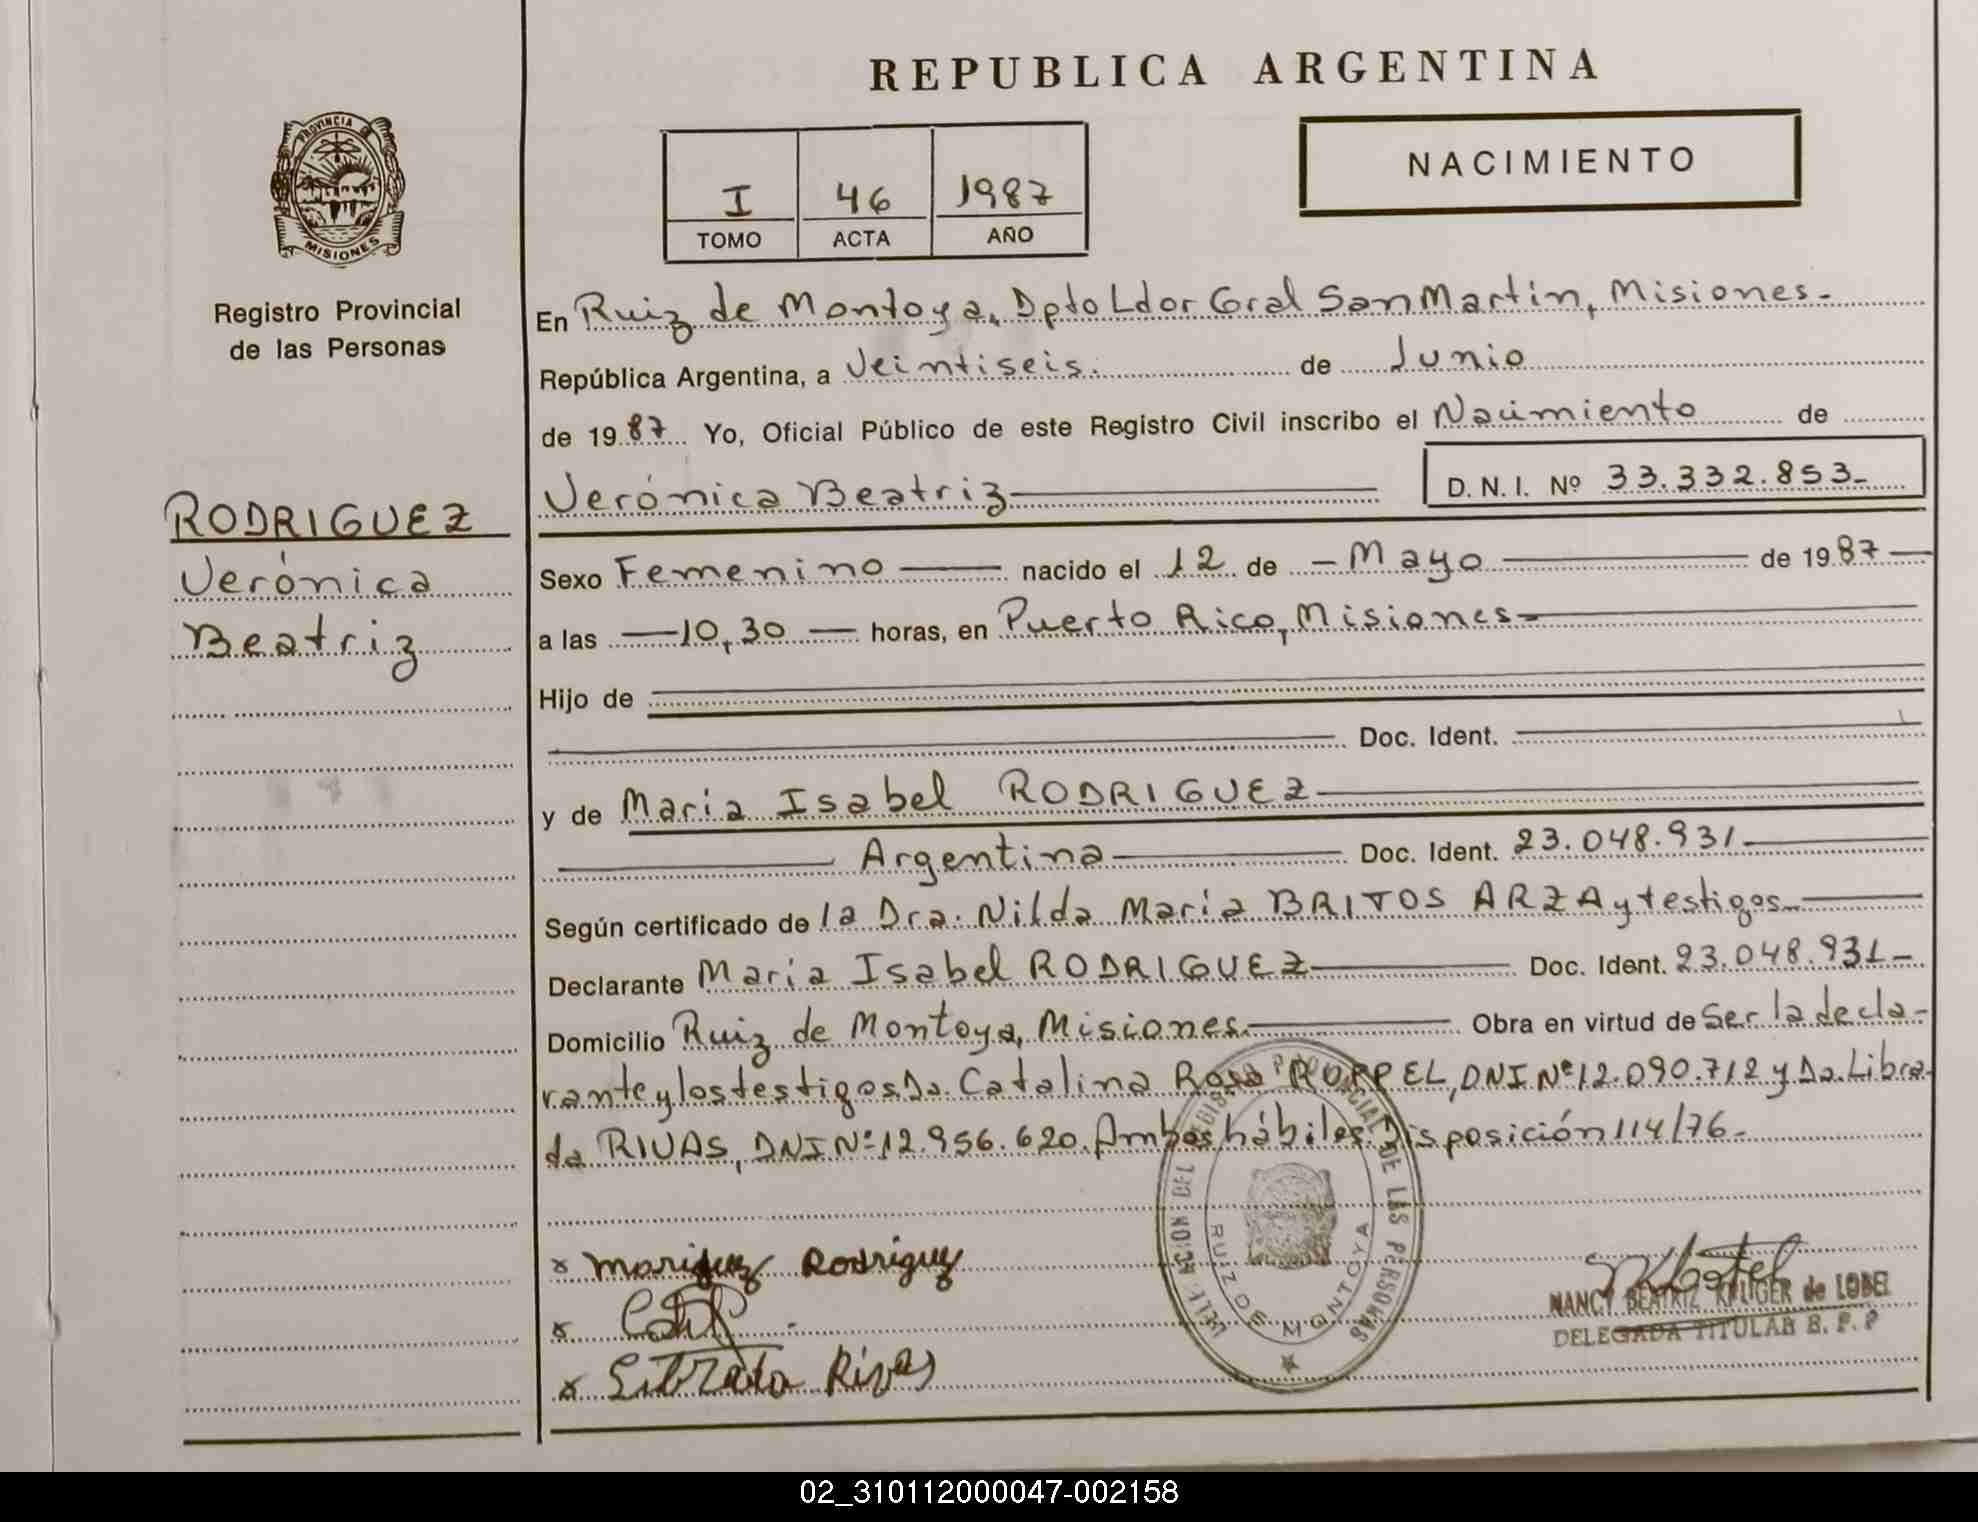 REPUBLICA ARGENTINA
NACIMIENTO
I 46 1987
TOMO ACTA AÑO
PROVINCIA DE MISIONES
Registro Provincial
de las Personas
RODRIGUEZ
Verónica
Beatriz
En Ruiz de Montoya, Dpto Ldor Gral San Martín, Misiones.-
República Argentina, a Veintiseis. de Junio
de 1987 Yo, Oficial Público de este Registro Civil inscribo el Nacimiento de
Verónica Beatriz D. N. I. Nº 33.332.853-
Sexo Femenino nacido el 12 de - Mayo de 1987
a las 10,30 horas, en Puerto Rico, Misiones-
Hijo de
Doc. Ident.
y de Maria Isabel RODRIGUEZ
Argentina Doc. Ident. 23.048.931
Según certificado de la Dra. Nilda María BRITOS ARZA y testigos
Declarante Maria Isabel RODRIGUEZ Doc. Ident. 23.048.931-
Domicilio Ruiz de Montoya, Misiones Obra en virtud de Ser la decla-
rante y los testigos Da. Catalina Rosa ROPPEL, DNI Nº 12.090.712 y Da. Libra-
da RIVAS, DNI Nº 12.956.620. Ambos hábiles. Disposición 114/76-
x Rodriguez
x
x Librada Rivas
DELEGACION DEL REGISTRO PROVINCIAL DE LAS PERSONAS
RUIZ DE MONTOYA
NANCY BEATRIZ KRUGER de LOBEL
DELEGADA TITULAR R. P. P
02_310112000047-002158